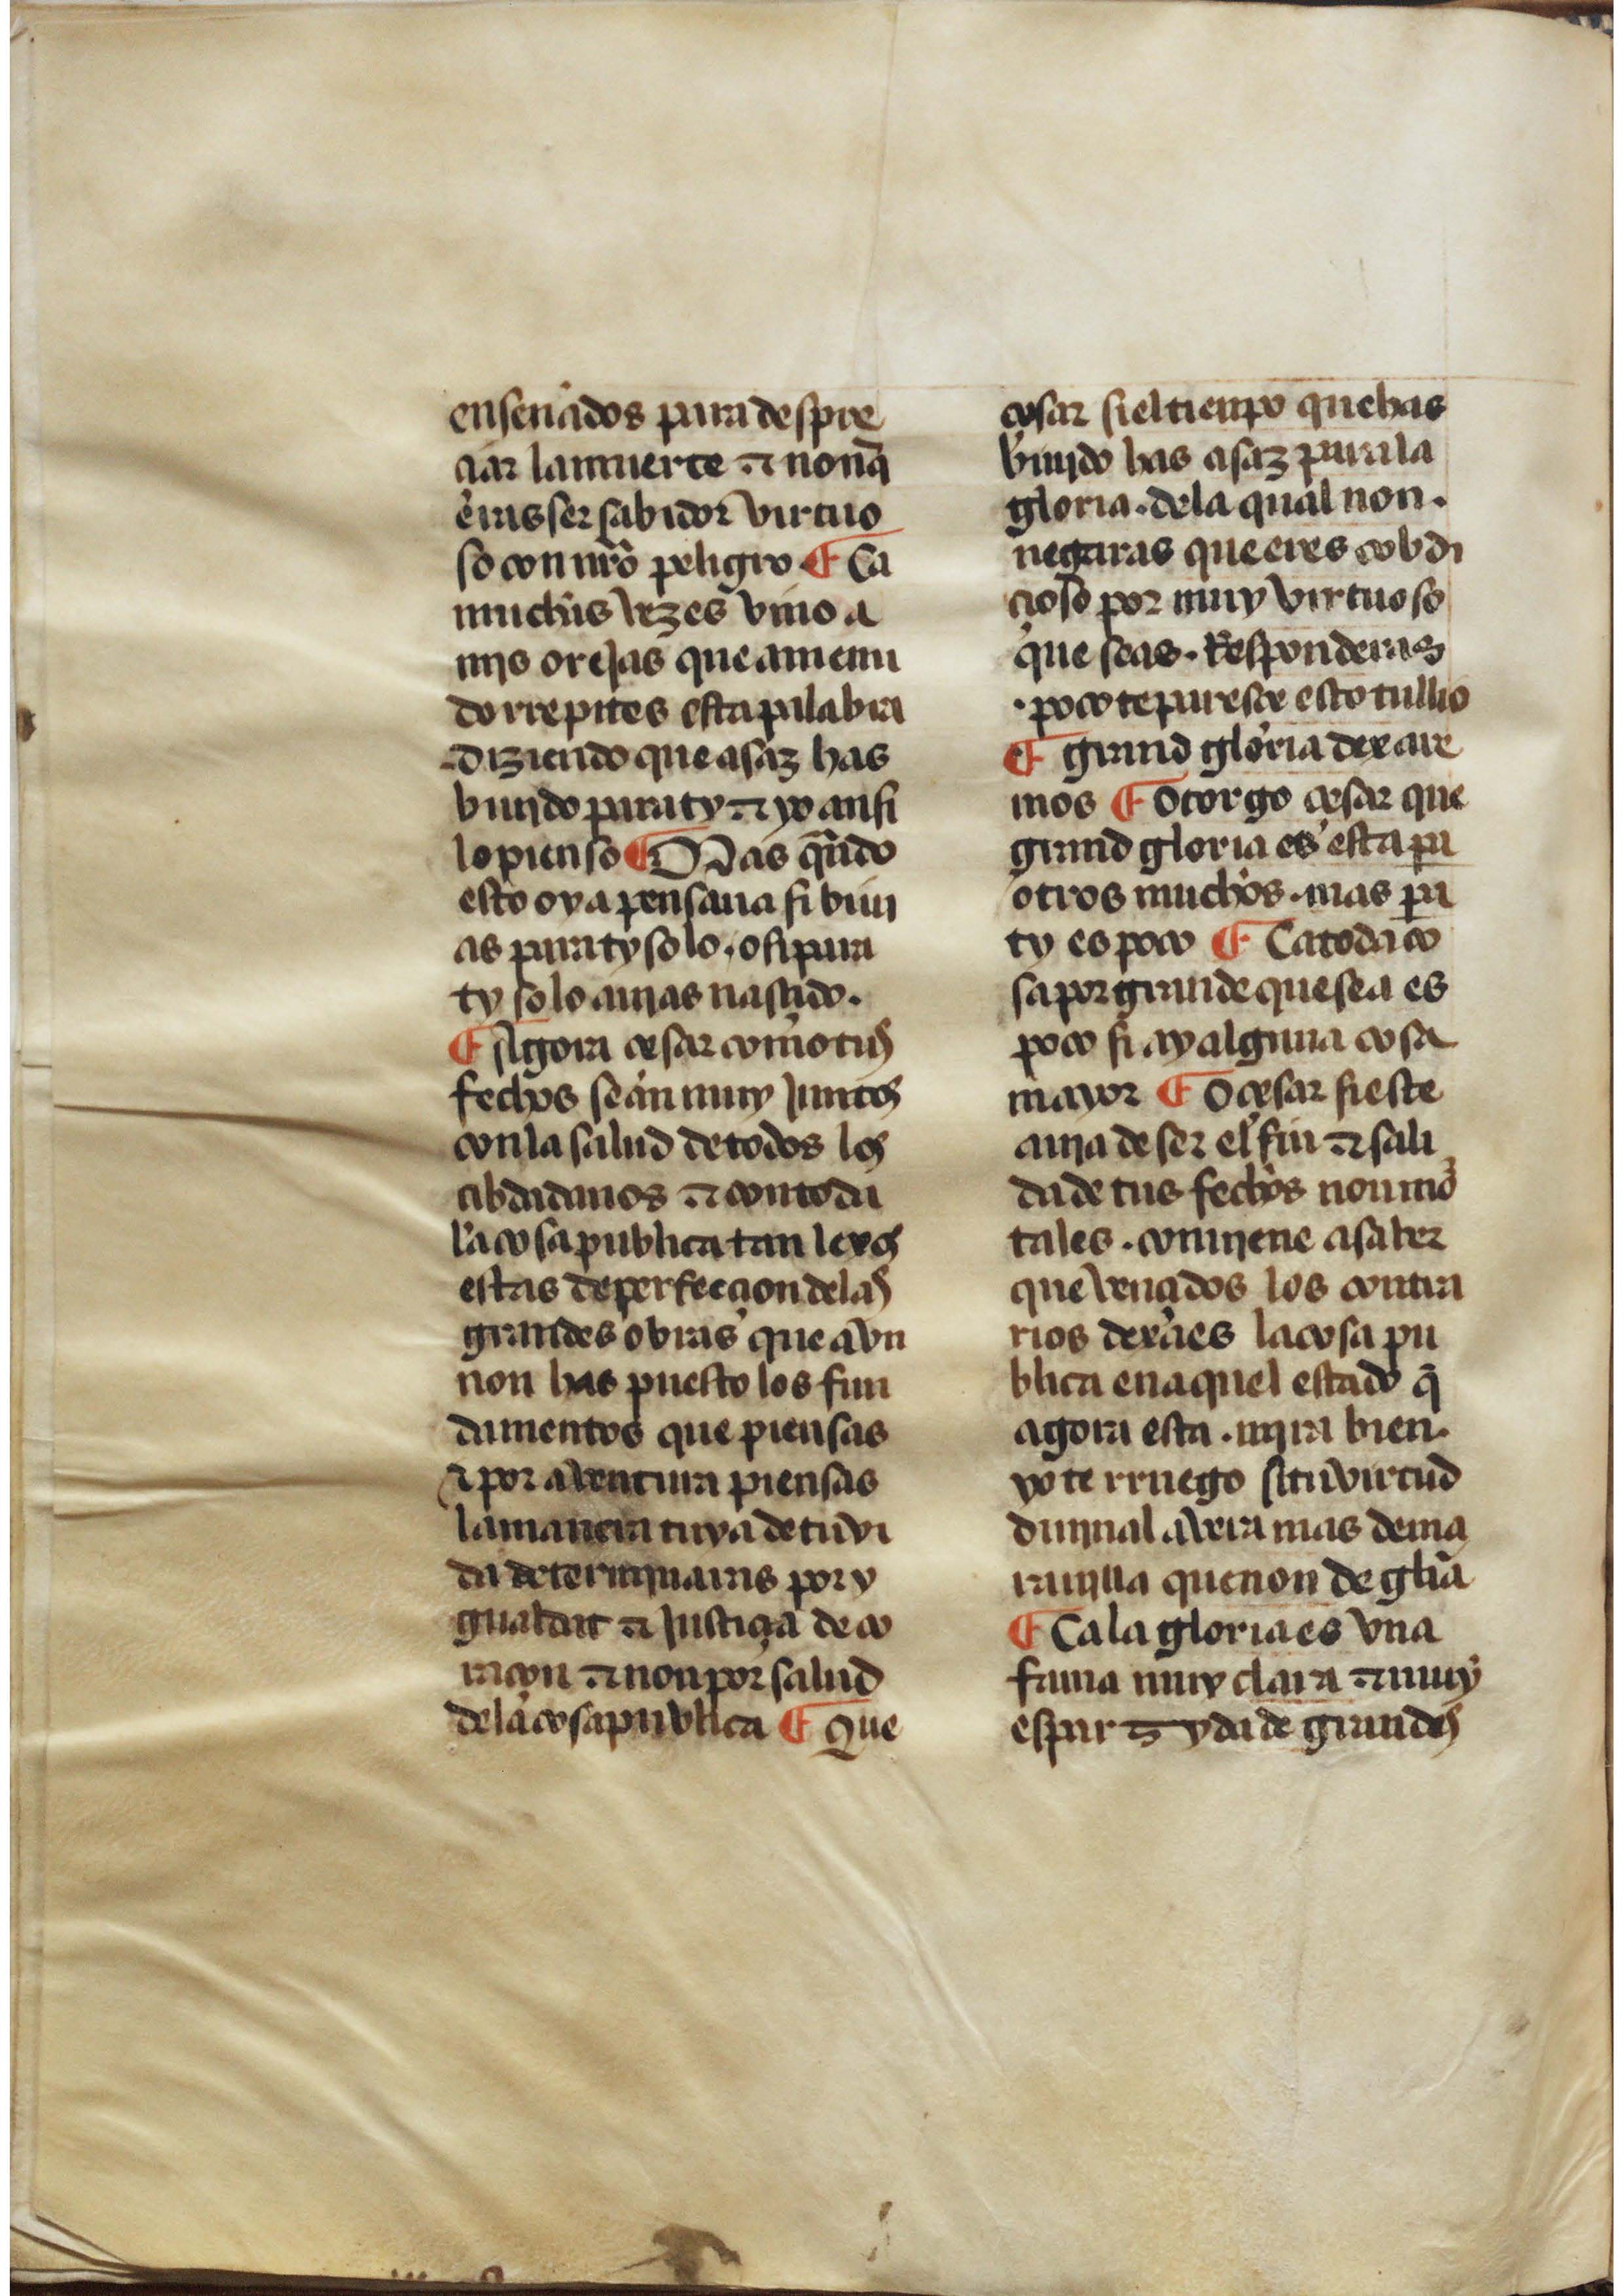 enseñados para despre
çiar la muerte ⁊ non q̃
eras ser sabidor virtuo
so con nr̃o peligro ¶ Ca
muchas vezes vino a
mis orejas que a menu
do rrepites esta palabra
diziendo que asaz has
biuido para ty ⁊ yo ansi
lo pienso ¶ Mas qũdo
esto oya pensaua si biui
as para ty solo . o si para
ty solo auias nasçido .
¶ Agora çesar com̃o tus
fechos sean muy juntos
con la salud de todos los
çibdadanos ⁊ con toda
la cosa publica tan lexos
estas de perfecçion de las
grandes obras que avn
non has puesto los fun
damentos que piensas
⁊ por aventura piensas
la manera tuya de tu vi
da determinaras por y
gualdat ⁊ justiçia de co
raçon ⁊ non por salud
de la cosa publica ¶ Que
çesar si el tienpo que has
biuido has asaz para la
gloria . de la qual non .
negaras que eres cobdi
çioso por muy virtuoso
que seas . Responderas
. poco te paresçe esto tullio
¶ grand gloria dexare
mos ¶ Otorgo çesar que
grand gloria es esta pa
otros muchos . mas pa
ty es poco ¶ Ca toda co
sa por grande que sea es
poco si ay alguna cosa
mayor ¶ O çesar si este
auia de ser el fin ⁊ sali
da de tus fechos non mor
tales . conuiene a saber
que vençidos los contra
rios dexases la cosa pu
blica en aquel estado q̃
agora esta . mira bien .
yo te rruego si tu virtud
diuinal avera mas de ma
rauilla que non de gl̃ia
¶ Ca la gloria es vna
fama muy clara ⁊ muy
espar zyda de grandes